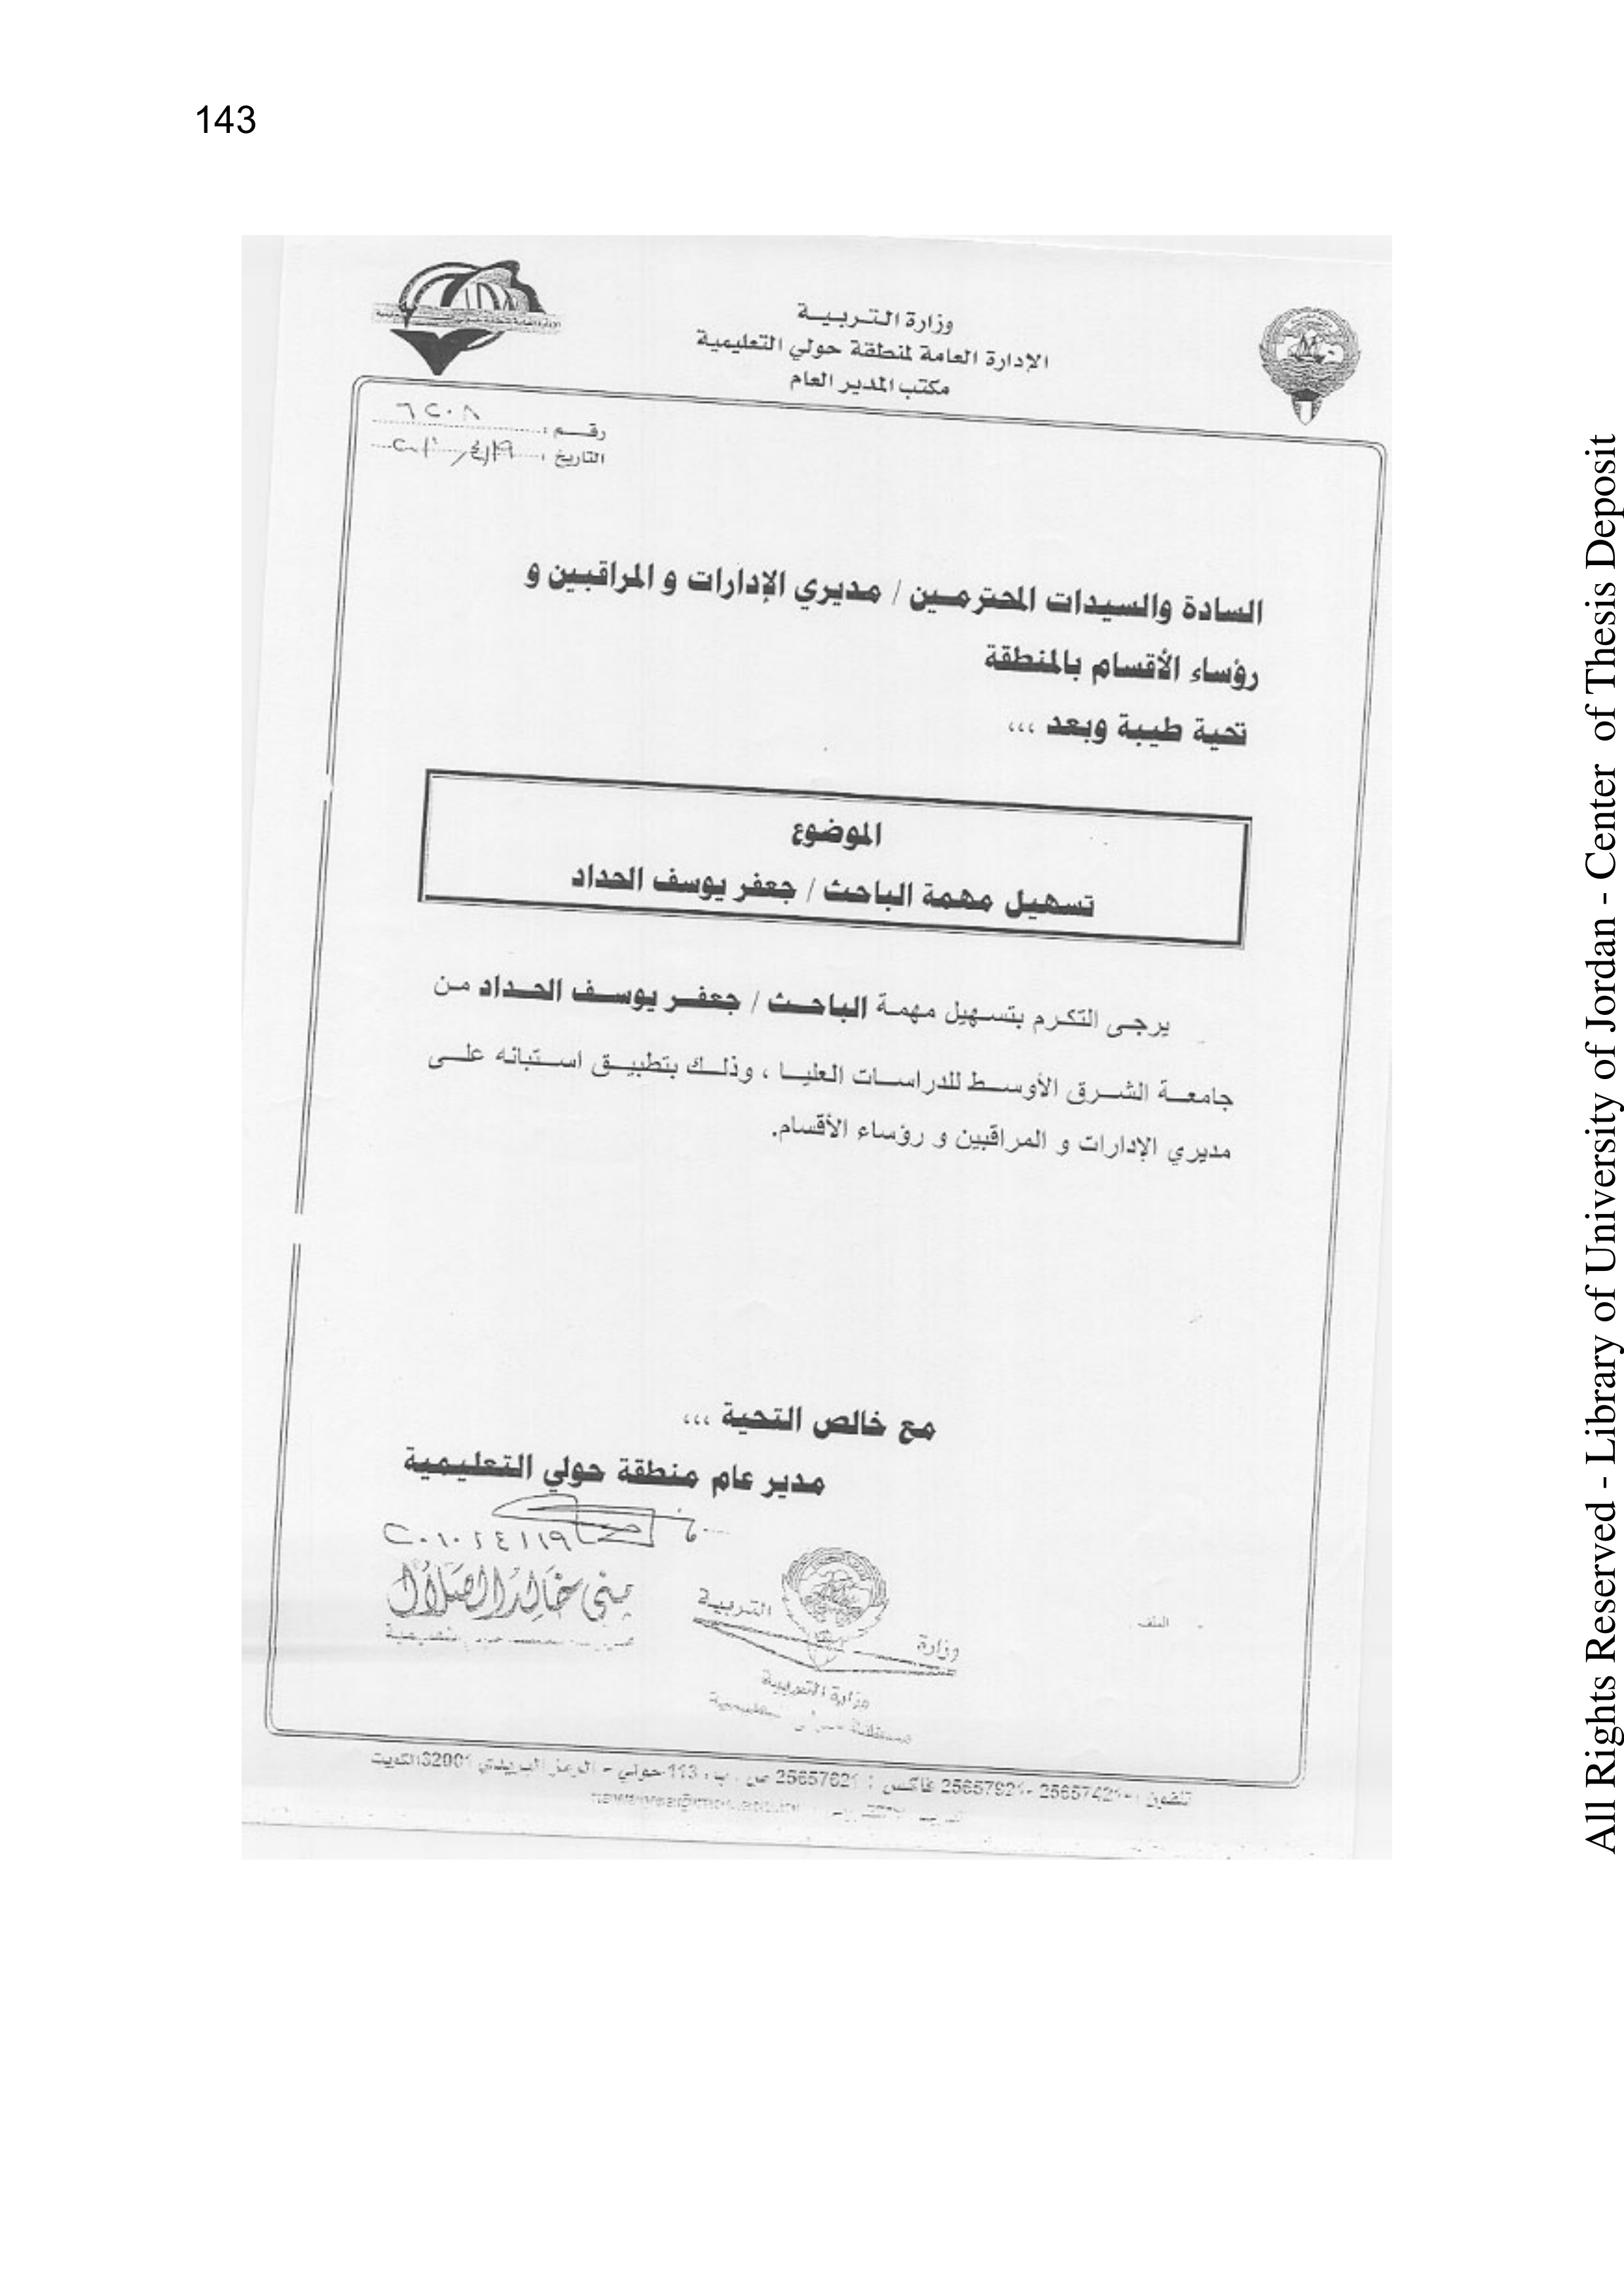 143
وزارة التربية
الإدارة العامة لمنطقة حولي التعليمية
مكتب المدير العام
رقم : ٦٢٠٨
التاريخ : ٢٠١٠/٤/١٩
السادة والسيدات المحترمين / مديري الإدارات و المراقبين و
رؤساء الأقسام بالمنطقة
تحية طيبة وبعد ،،،
الموضوع
تسهيل مهمة الباحث / جعفر يوسف الحداد
يرجى التكرم بتسهيل مهمة الباحث / جعفر يوسف الحداد من
جامعة الشرق الأوسط للدراسات العليا ، وذلك بتطبيق استبانه على
مديري الإدارات و المراقبين و رؤساء الأقسام.
مع خالص التحية ،،،
مدير عام منطقة حولي التعليمية
منى خالد الصلال
وزارة التربية
وزارة التربية
الملف
تلفون : 25657421 - 25657921 فاكس : 25657621 ص . ب : 113 حولي - الرمز البريدي 32001 الكويت
All Rights Reserved - Library of University of Jordan - Center of Thesis Deposit